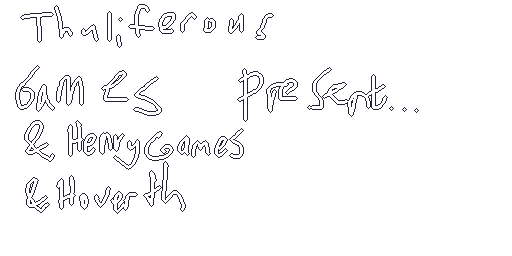 Thuliferous
Games Present...
& HenryGames
& Hoverth